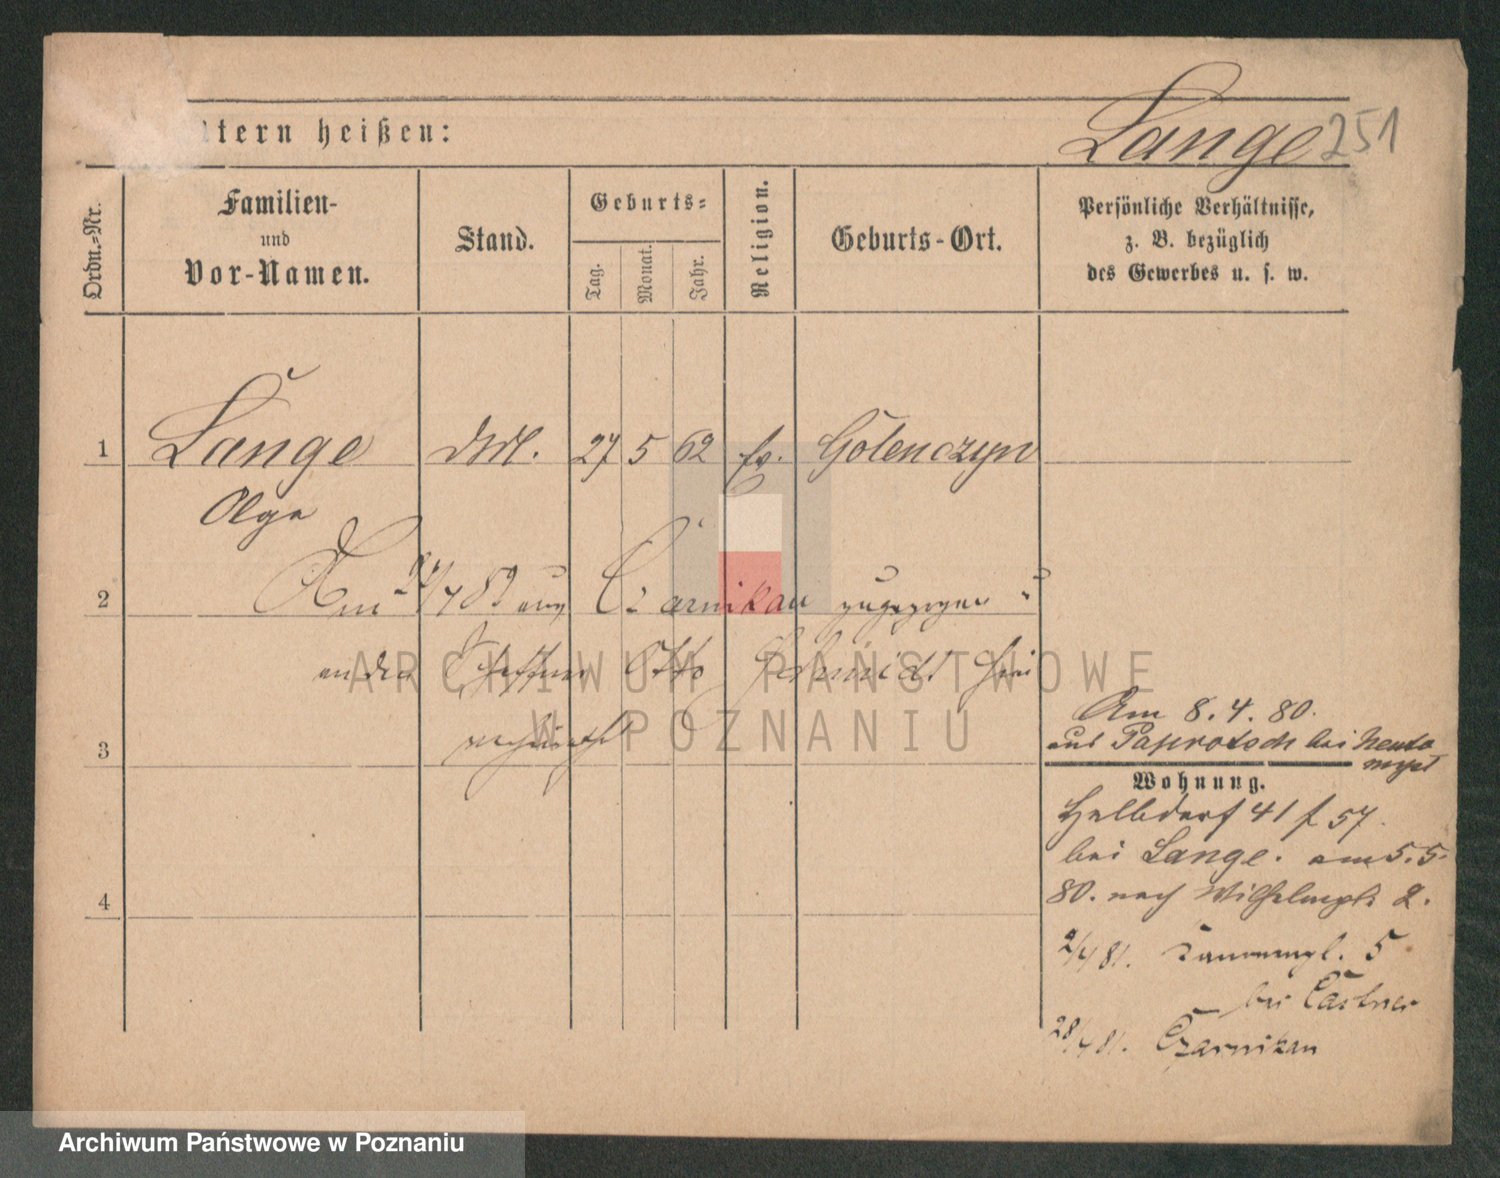 ltern heißen:
Lange 251
Ordn.-Nr.
Familien-
und
Vor-Namen.
Stand.
Geburts-
Tag.
Monat.
Jahr.
Religion.
Geburts-Ort.
Persönliche Verhältnisse,
z. B. bezüglich
des Gewerbes u. s. w.
1 Lange 27 5 62 ev. Golenczyn
Olga
2 Am 82 aus Czarnikau zugezogen u
an den Otto Schmidt hier
3 verheirathet
Am 8.4.80.
aus Paprotsch bei Neuto
mysl
Wohnung.
Halbdorf 41 f 57.
bei Lange. am 5.5.
80. nach Wilhelmpl. 2.
4
2/4 81. 5
bei
28/4 81. Czarnikau
ARCHIWUM PAŃSTWOWE
W POZNANIU
Archiwum Państwowe w Poznaniu